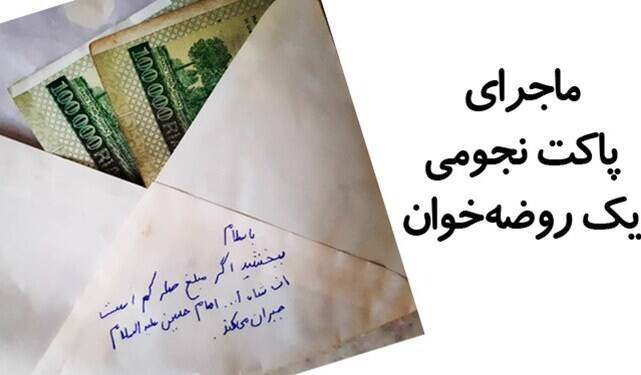 ماجرای
پاکت نجومی
یک روضه‌خوان
100000RI
100000RI
باسلام
ببخشید اگر مبلغ صله کم است
ان شاء ا... امام حسین علیه السلام
جبران می‌کند.